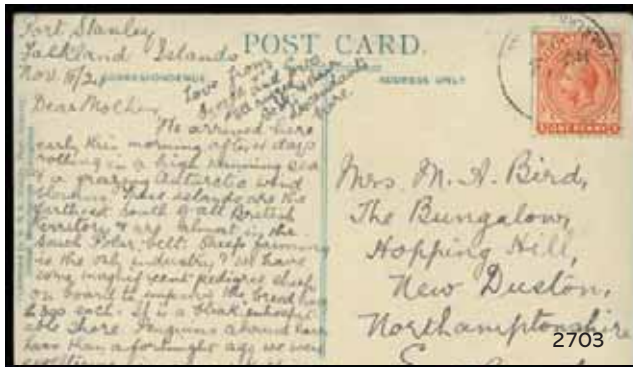 Port Stanley
Falkland Islands
Nov. 11/21
POST CARD.
CORRESPONDENCE
ADDRESS ONLY
Love from
here.
Dear Mother,
We arrived here
early this morning after 4 days
rolling in a high running sea
& a Antarctic wind
blowing. These islands are the
farthest South of all British
territory & are almost in the
South Polar belt. Sheep farming
is the only industry & we have
some magnificent pedigree sheep
on board to improve the breed
each. It is a bleak
able shore. Penguins abound here
less than a fortnight ago we were
Mrs. M. A. Bird,
The Bungalow,
Hopping Hill,
New Duston,
Northamptonshire
ONE PENNY
2703